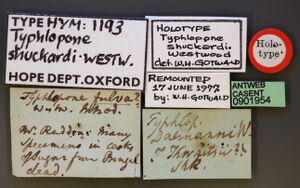 TYPE HYM: 1193
Typhlopone
shuckardi. WESTW.
HOPE DEPT. OXFORD
HOLOTYPE
Typhlopone
shuckardi.
Westwood
det. W.H. GOTWALD
Holo-
type.
REMOUNTED
17 JUNE 1977
by: W.H. GOTWALD
ANTWEB
CASENT
0901954
Typhlopone fulva?
Westw.
W. Reddon. Many
specimens in casks
of sugar from Bengal
dead.
Typhlop.
Dalmanni W.
Thwaitsii
Shk.